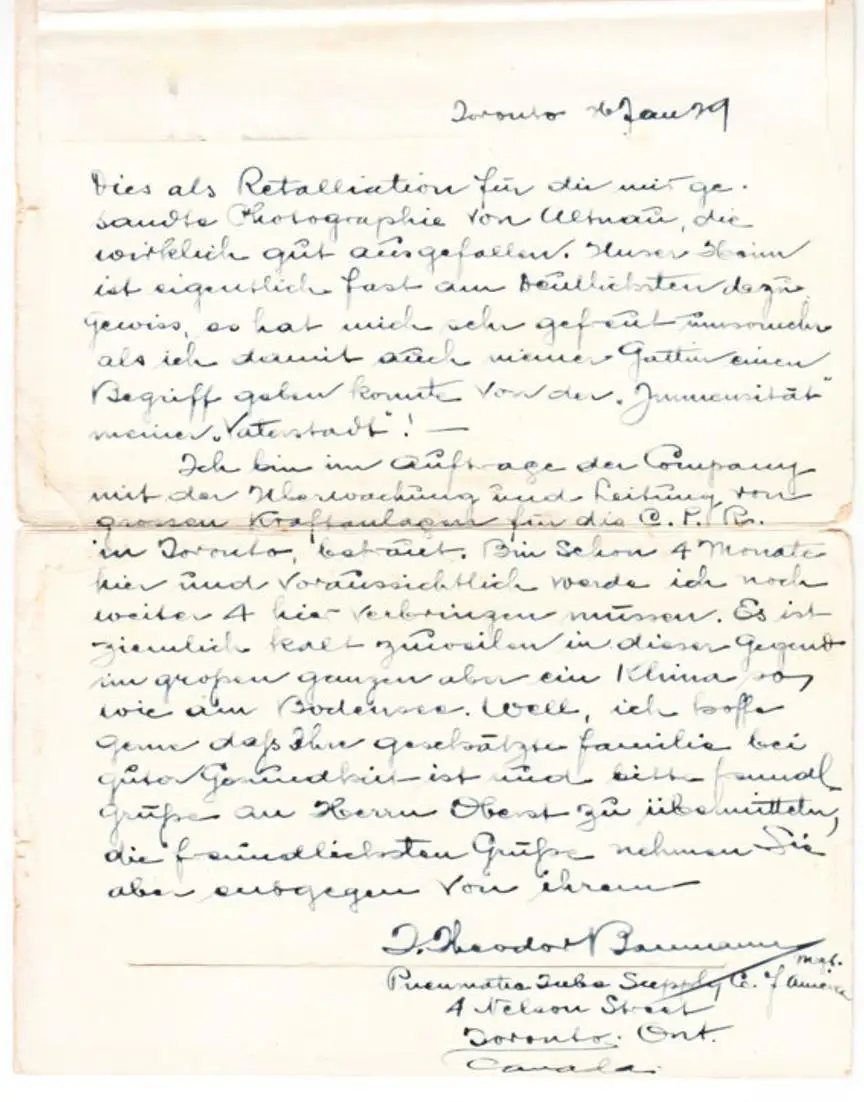 Toronto 26 Jan 29
Dies als Retalliation für die mir ge-
sandte Photographie von Altnau, die
wirklich gut ausgefallen. Unser Heim
ist eigentlich fast am Deutlichsten dazu.
Gewiss, es hat mich sehr gefreut umsomehr
als ich damit auch meiner Gattin einen
Begriff geben konnte von der „Immensität"
meiner „Vaterstadt"! —
Ich bin im Auftrage der Company
mit der Überwachung und Leitung von
grossen Kraftanlagen für die C. P. R.
in Toronto, betraut. Bin Schon 4 Monate
hier und voraussichtlich werde ich noch
weiter 4 hier verbringen müssen. Es ist
ziemlich kalt zuweilen in dieser Gegend
im großen ganzen aber ein Klima so,
wie am Bodensee. Well, ich hoffe
gerne daß Ihre geschätzte Familie bei
guter Gesundheit ist und bitte freundl
Grüße an Herrn Oberst zu übermitteln,
die freundlichsten Grüße nehmen Sie
aber entgegen von ihrem
J. Theodor Baumann
mgr.
Pneumatic Tube Supply C. of America
4 Nelson Street
Toronto. Ont.
Canada.